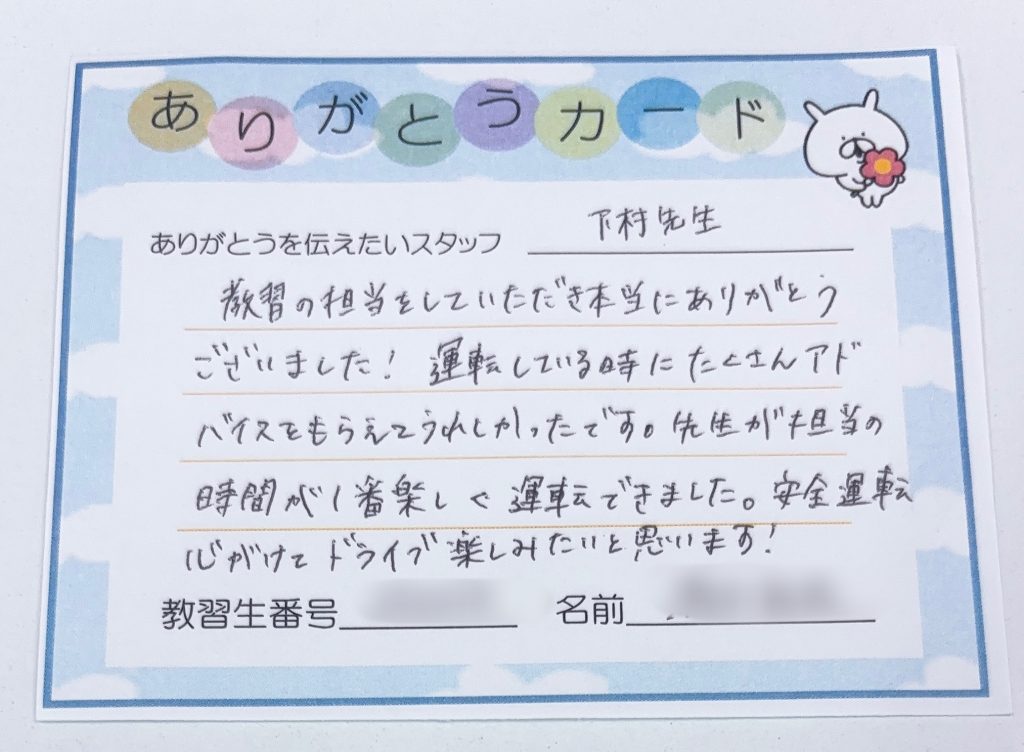 ありがとうカード
ありがとうを伝えたいスタッフ 下村先生
教習の担当をしていただき本当にありがとう
ございました! 運転している時にたくさんアド
バイスをもらえてうれしかったです。先生が担当の
時間が1番楽しく運転できました。安全運転
心がけてドライブ楽しみたいと思います!
教習生番号 名前